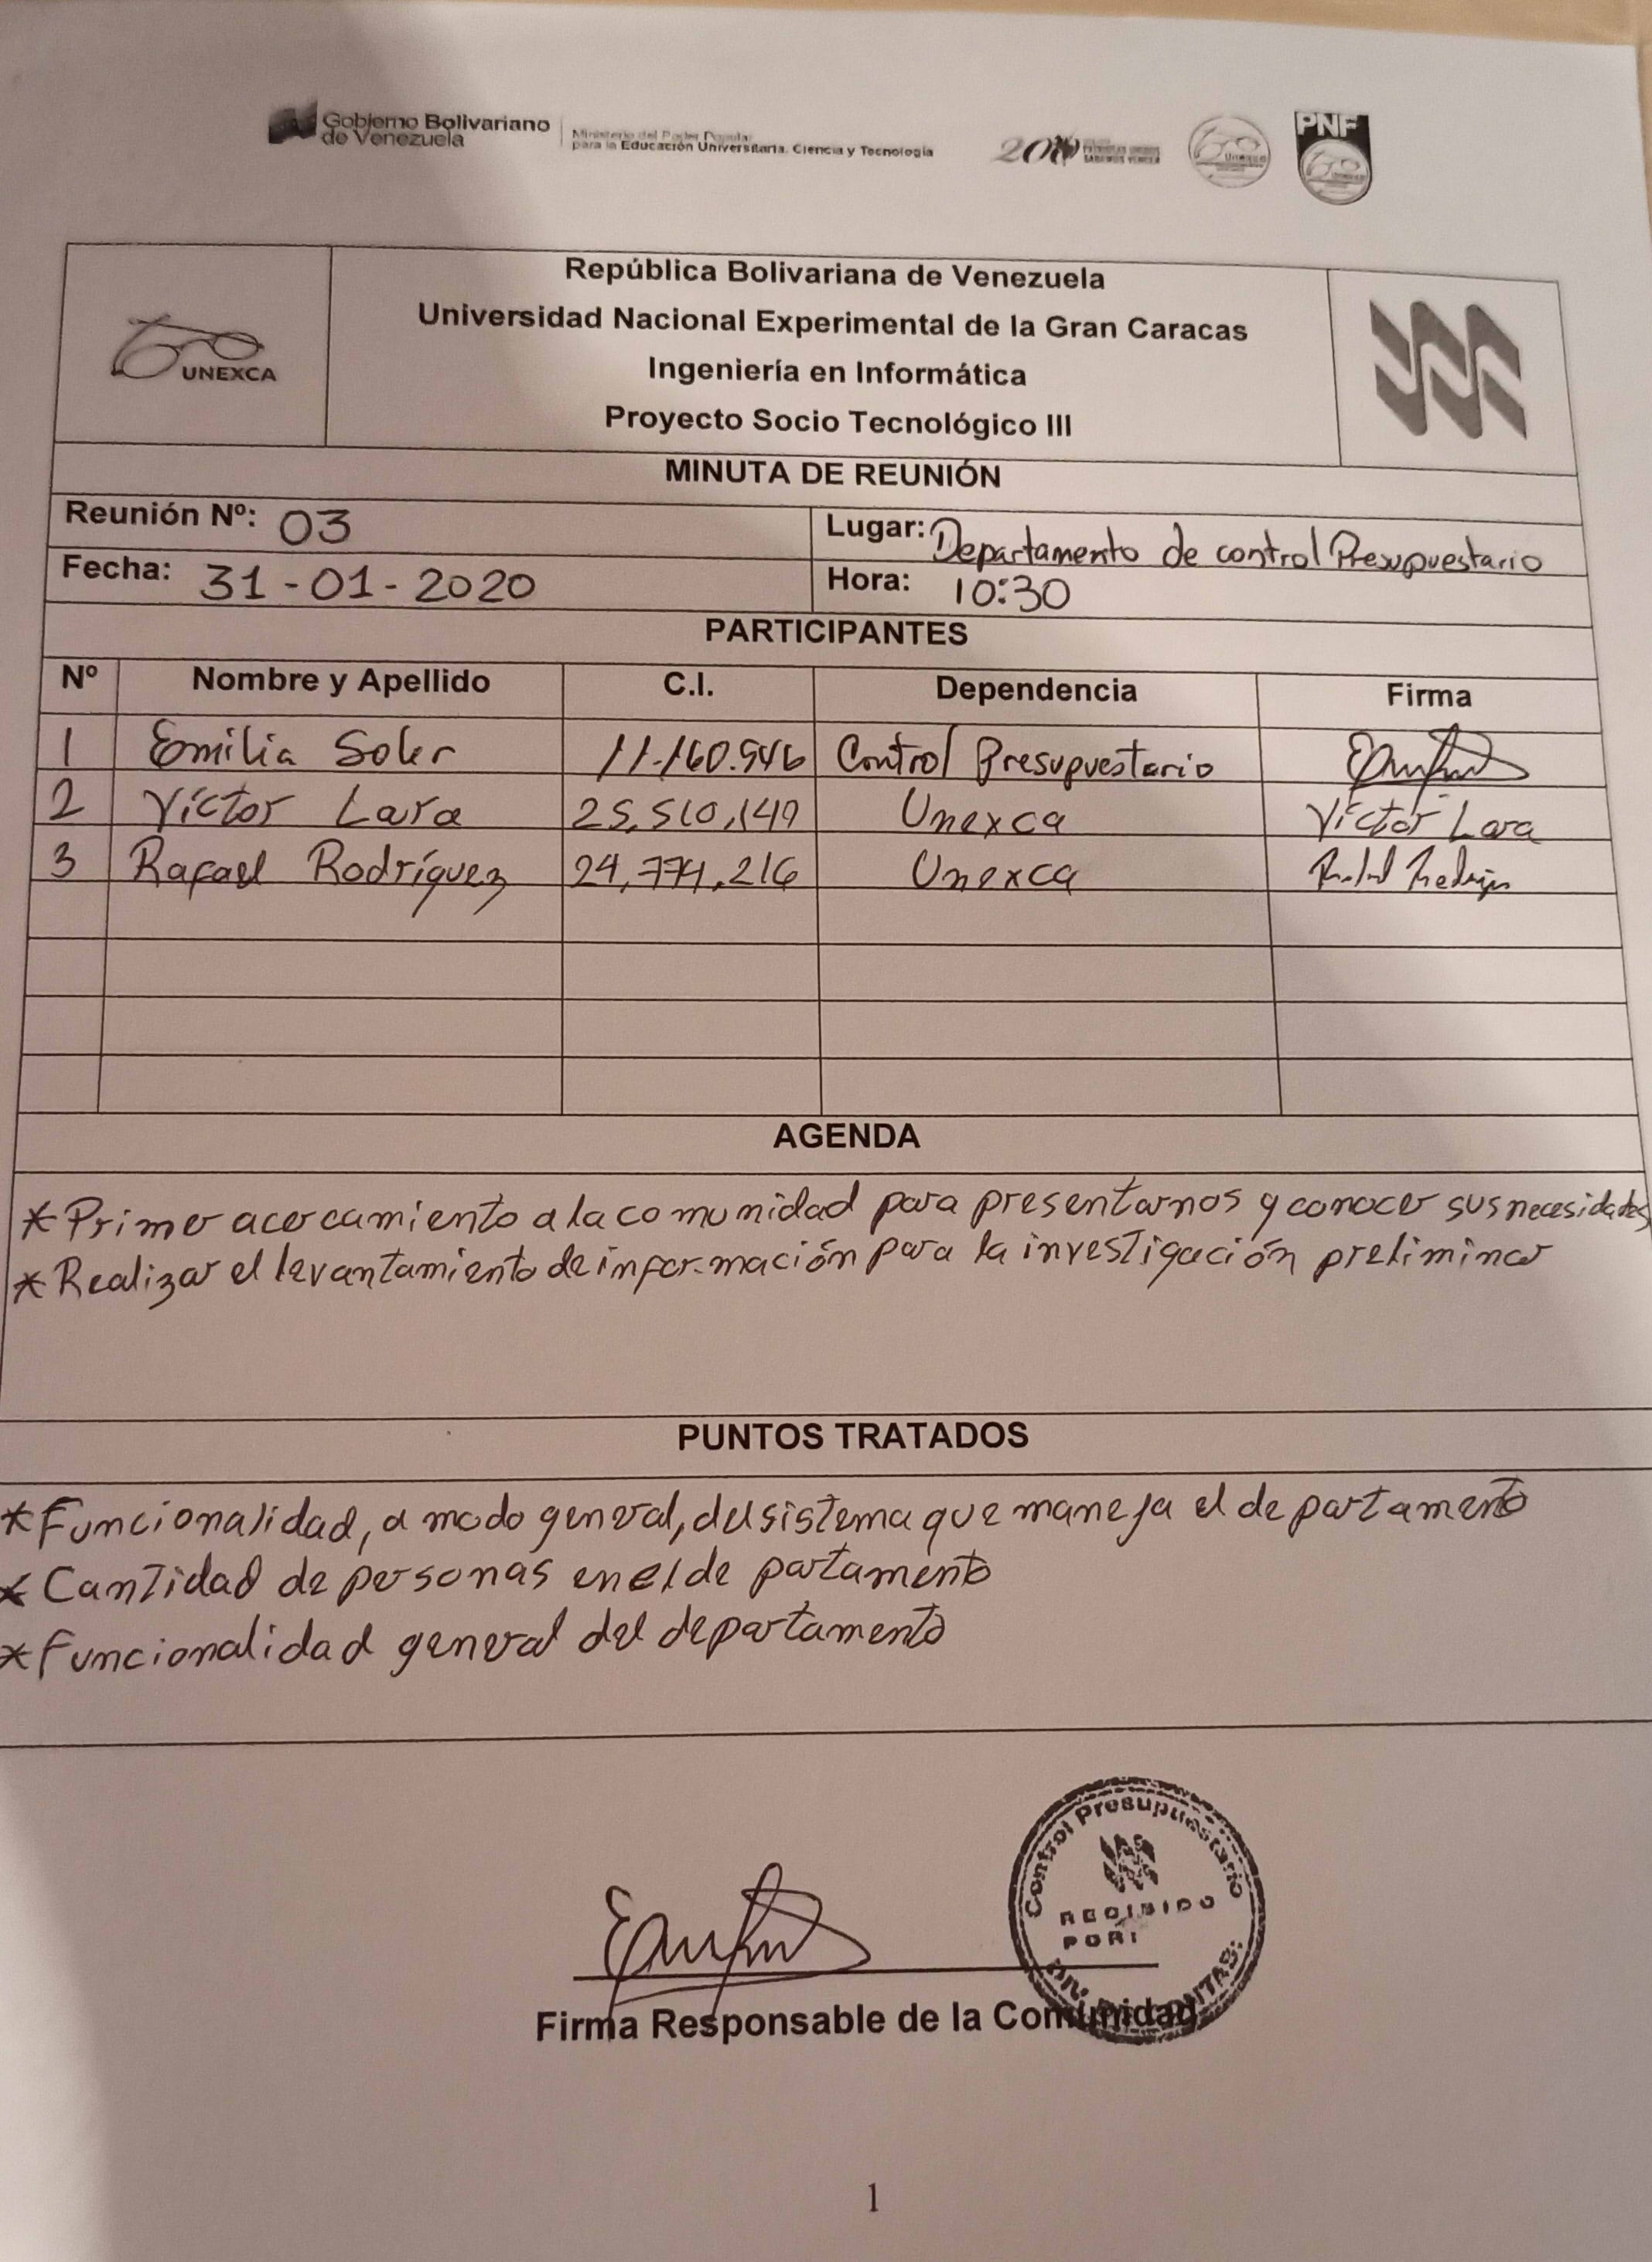 Gobierno Bolivariano
de Venezuela
Ministerio del Poder Popular
para la Educación Universitaria, Ciencia y Tecnología
200
PNF
UNEXCA
República Bolivariana de Venezuela
Universidad Nacional Experimental de la Gran Caracas
Ingeniería en Informática
Proyecto Socio Tecnológico III
MINUTA DE REUNIÓN
Reunión Nº: 03
Lugar: Departamento de control Presupuestario
Fecha: 31-01-2020
Hora: 10:30
PARTICIPANTES
Nº Nombre y Apellido C.I. Dependencia Firma
1 Emilia Soler 11.160.546 Control Presupuestario
2 Víctor Lara 25,510,149 Unexca Víctor Lara
3 Rafael Rodríguez 24,774,216 Unexca
AGENDA
* Primer acercamiento a la comunidad para presentarnos y conocer sus necesidades
* Realizar el levantamiento de información para la investigación preliminar
PUNTOS TRATADOS
* Funcionalidad, a modo general, del sistema que maneja el departamento
* Cantidad de personas en el departamento
* Funcionalidad general del departamento
Control Presupuestario
RECIBIDO
POR:
Firma Responsable de la Comunidad
1